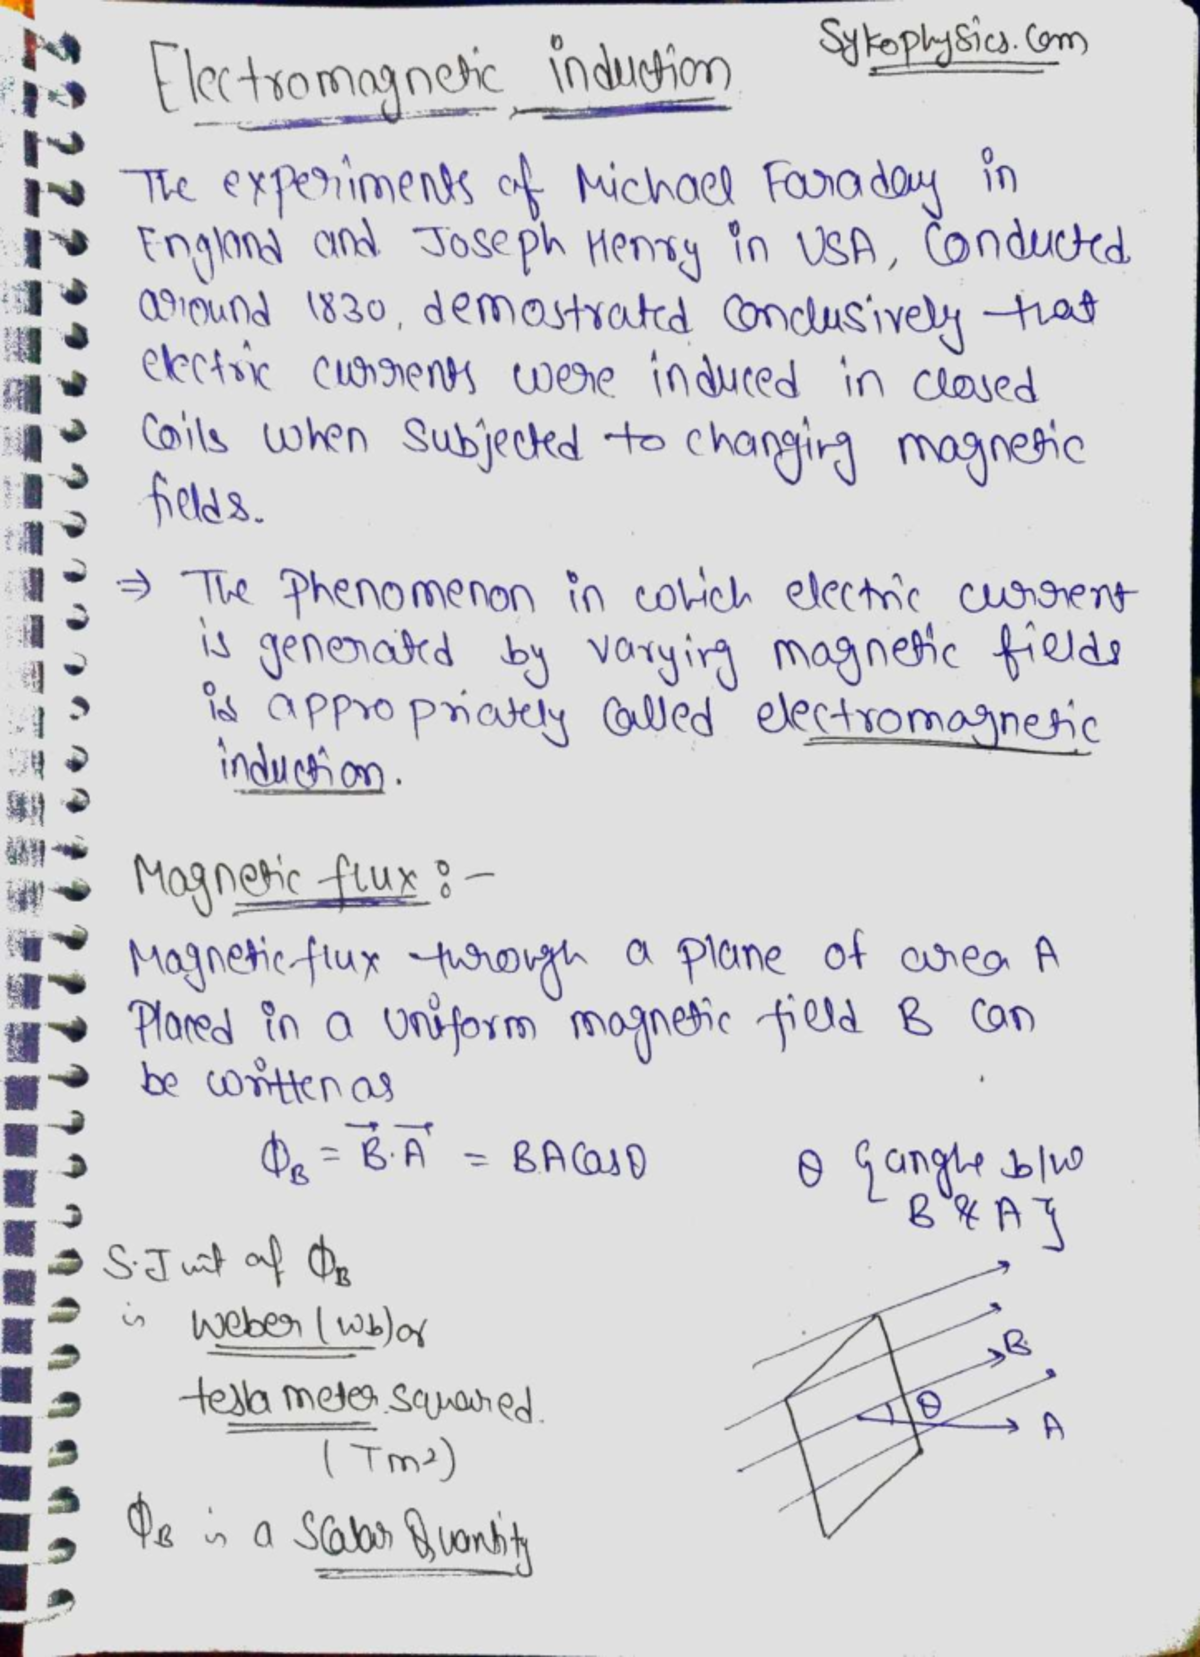 Electromagnetic induction
Sykophysics.Com
The experiments of Michael Faraday in
England and Joseph Henry in USA, Conducted
around 1830, demostrated Conclusively that
electric currents were induced in closed
Coils when subjected to changing magnetic
fields.
⇒ The Phenomenon in which electric current
is generated by varying magnetic fields
is appropriately Called electromagnetic
induction.
Magnetic flux :-
Magnetic flux through a plane of area A
Placed in a Uniform magnetic field B Can
be written as
ΦB = B⃗.A⃗ = BACosθ
θ {anghe b/w
B & A}
S.I unit of ΦB
is weber (wb) or
tesla meter squared.
(Tm²)
ΦB is a Scalar Quantity
B
θ
A